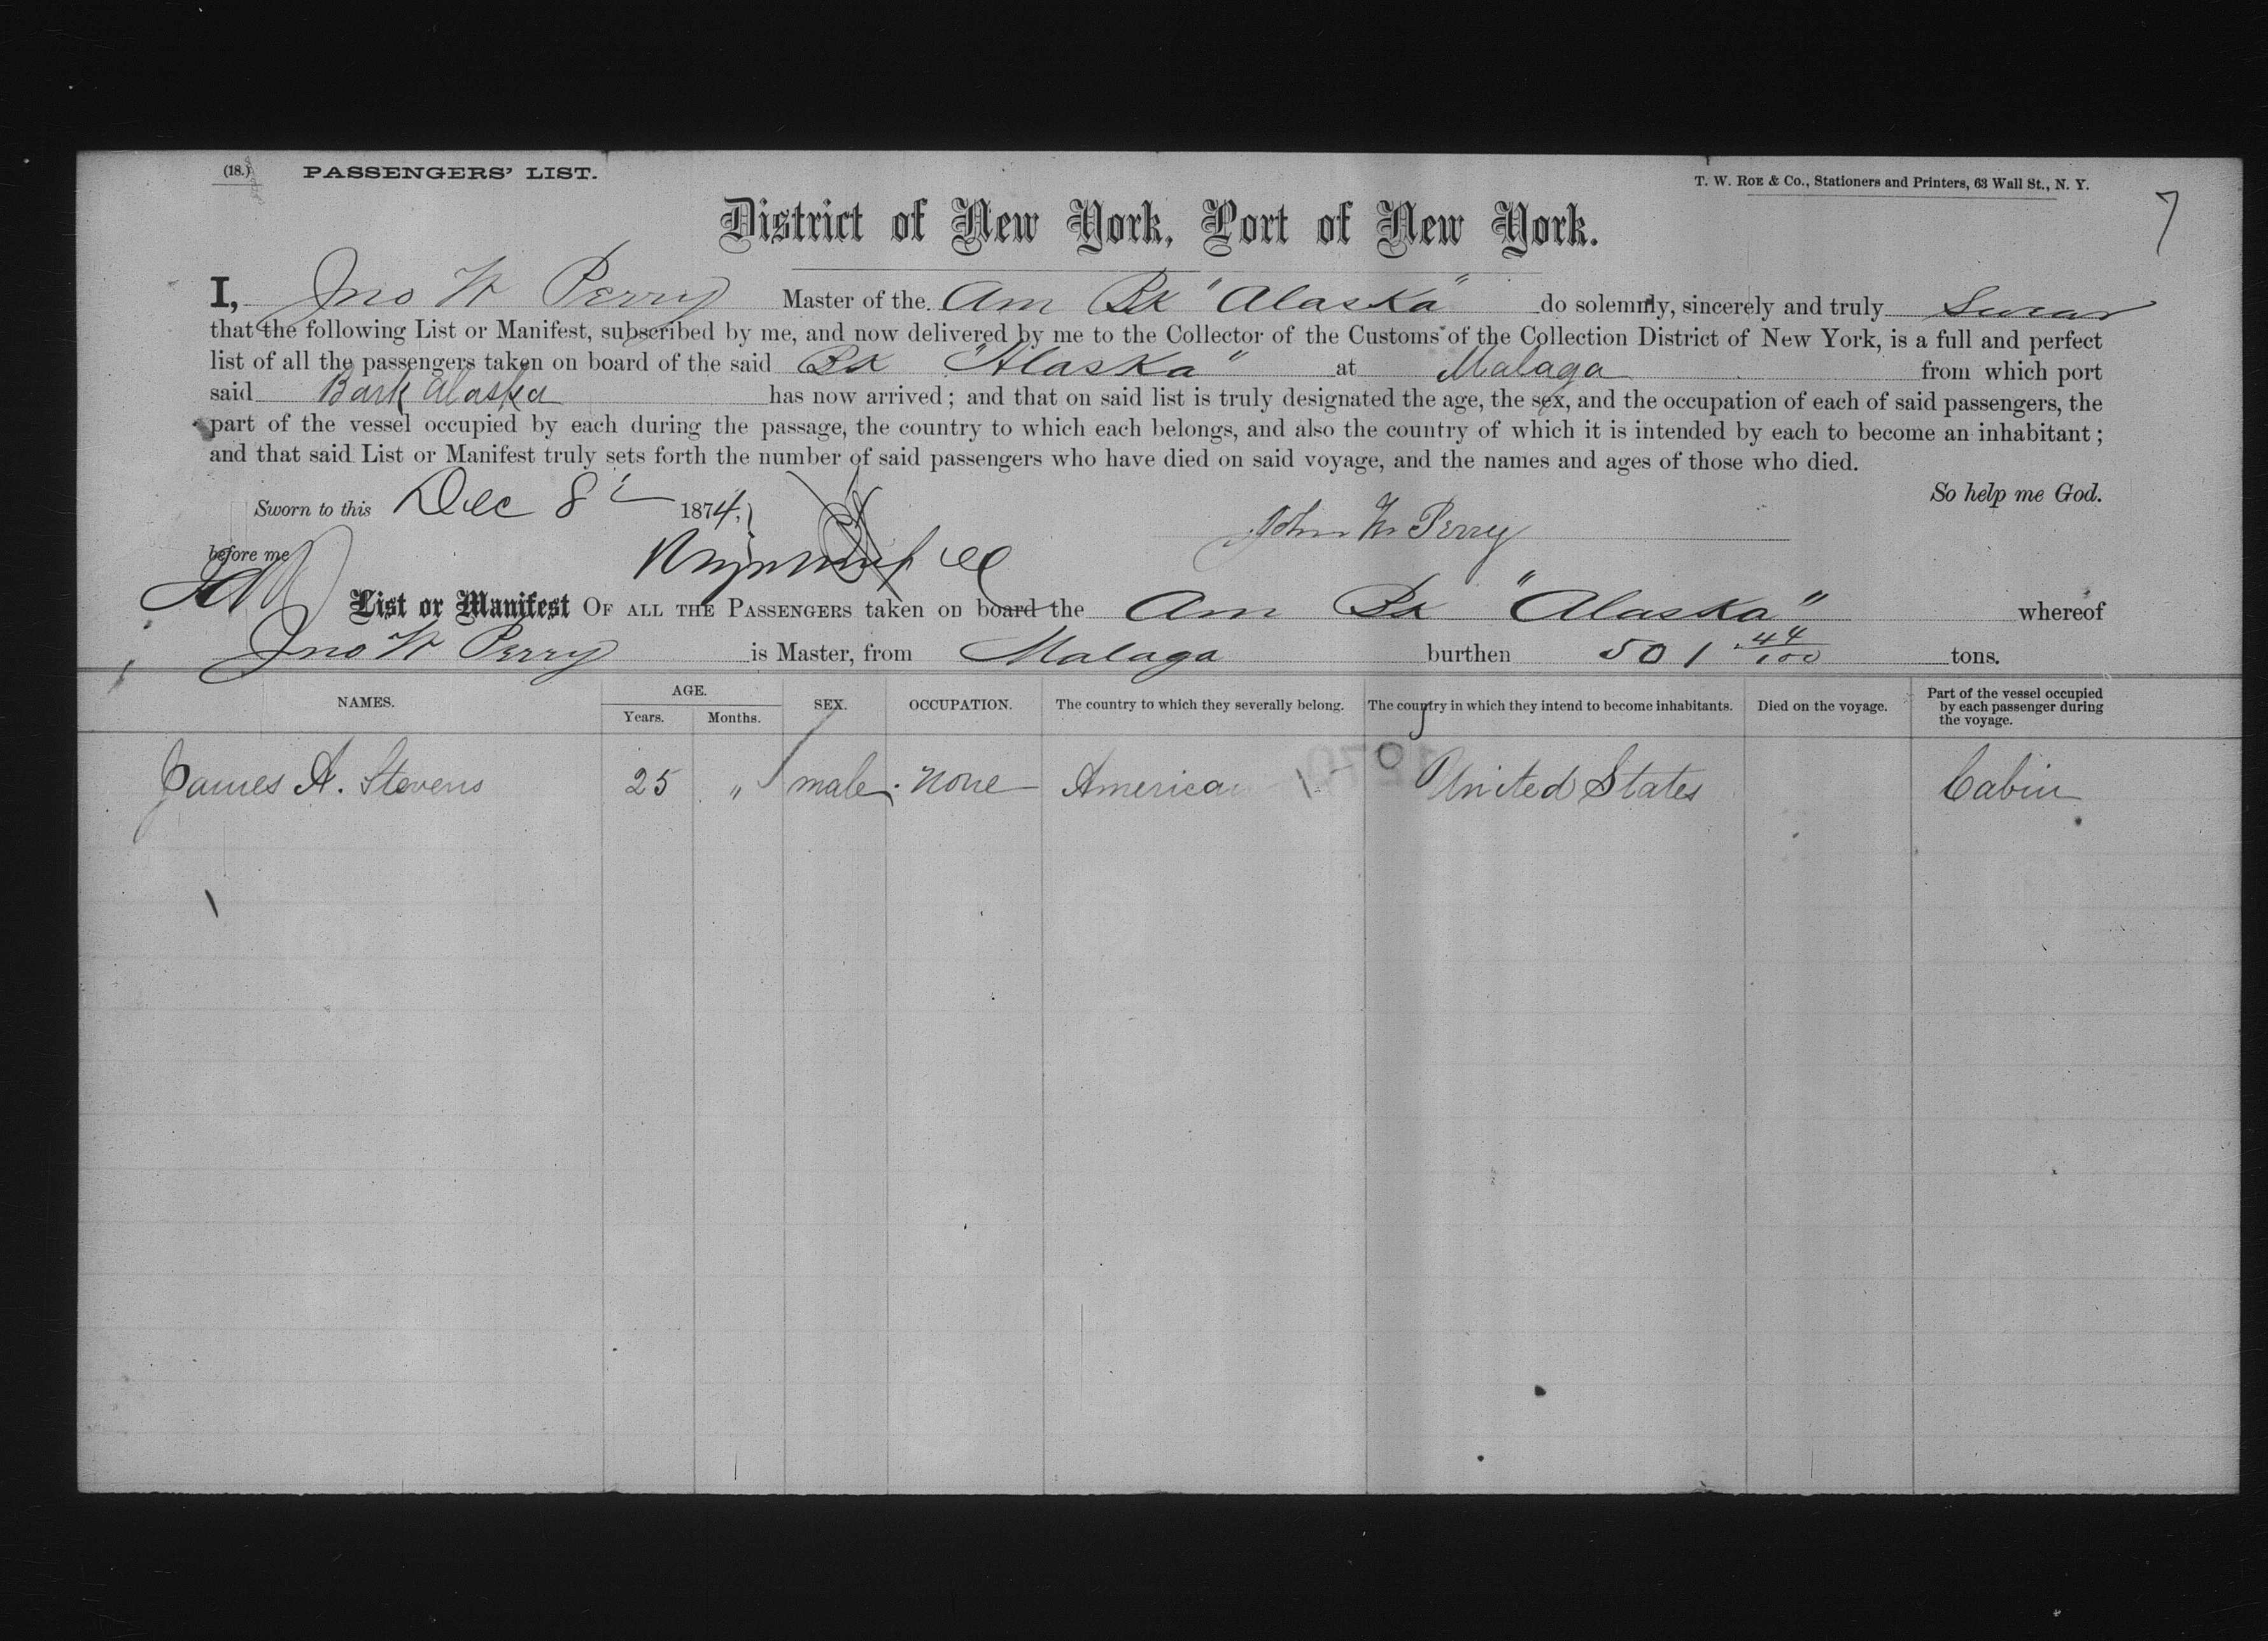 (18.) PASSENGERS' LIST.
T. W. ROE & Co., Stationers and Printers, 63 Wall St., N. Y.
7
District of New York, Port of New York.
I, Jno W Perry Master of the Am Bk "Alaska" do solemnly, sincerely and truly Swear
that the following List or Manifest, subscribed by me, and now delivered by me to the Collector of the Customs of the Collection District of New York, is a full and perfect
list of all the passengers taken on board of the said Bk "Alaska" at Malaga from which port
said Bark Alaska has now arrived; and that on said list is truly designated the age, the sex, and the occupation of each of said passengers, the
part of the vessel occupied by each during the passage, the country to which each belongs, and also the country of which it is intended by each to become an inhabitant;
and that said List or Manifest truly sets forth the number of said passengers who have died on said voyage, and the names and ages of those who died.
So help me God.
Sworn to this Dec 8 1874,
John W Perry
before me
List or Manifest OF ALL THE PASSENGERS taken on board the Am Bk "Alaska" whereof
Jno W Perry is Master, from Malaga burthen 501 44/100 tons.
NAMES. AGE. Years. Months. SEX. OCCUPATION. The country to which they severally belong. The country in which they intend to become inhabitants. Died on the voyage. Part of the vessel occupied by each passenger during the voyage.
James A. Stevens 25 " male. none American United States Cabin